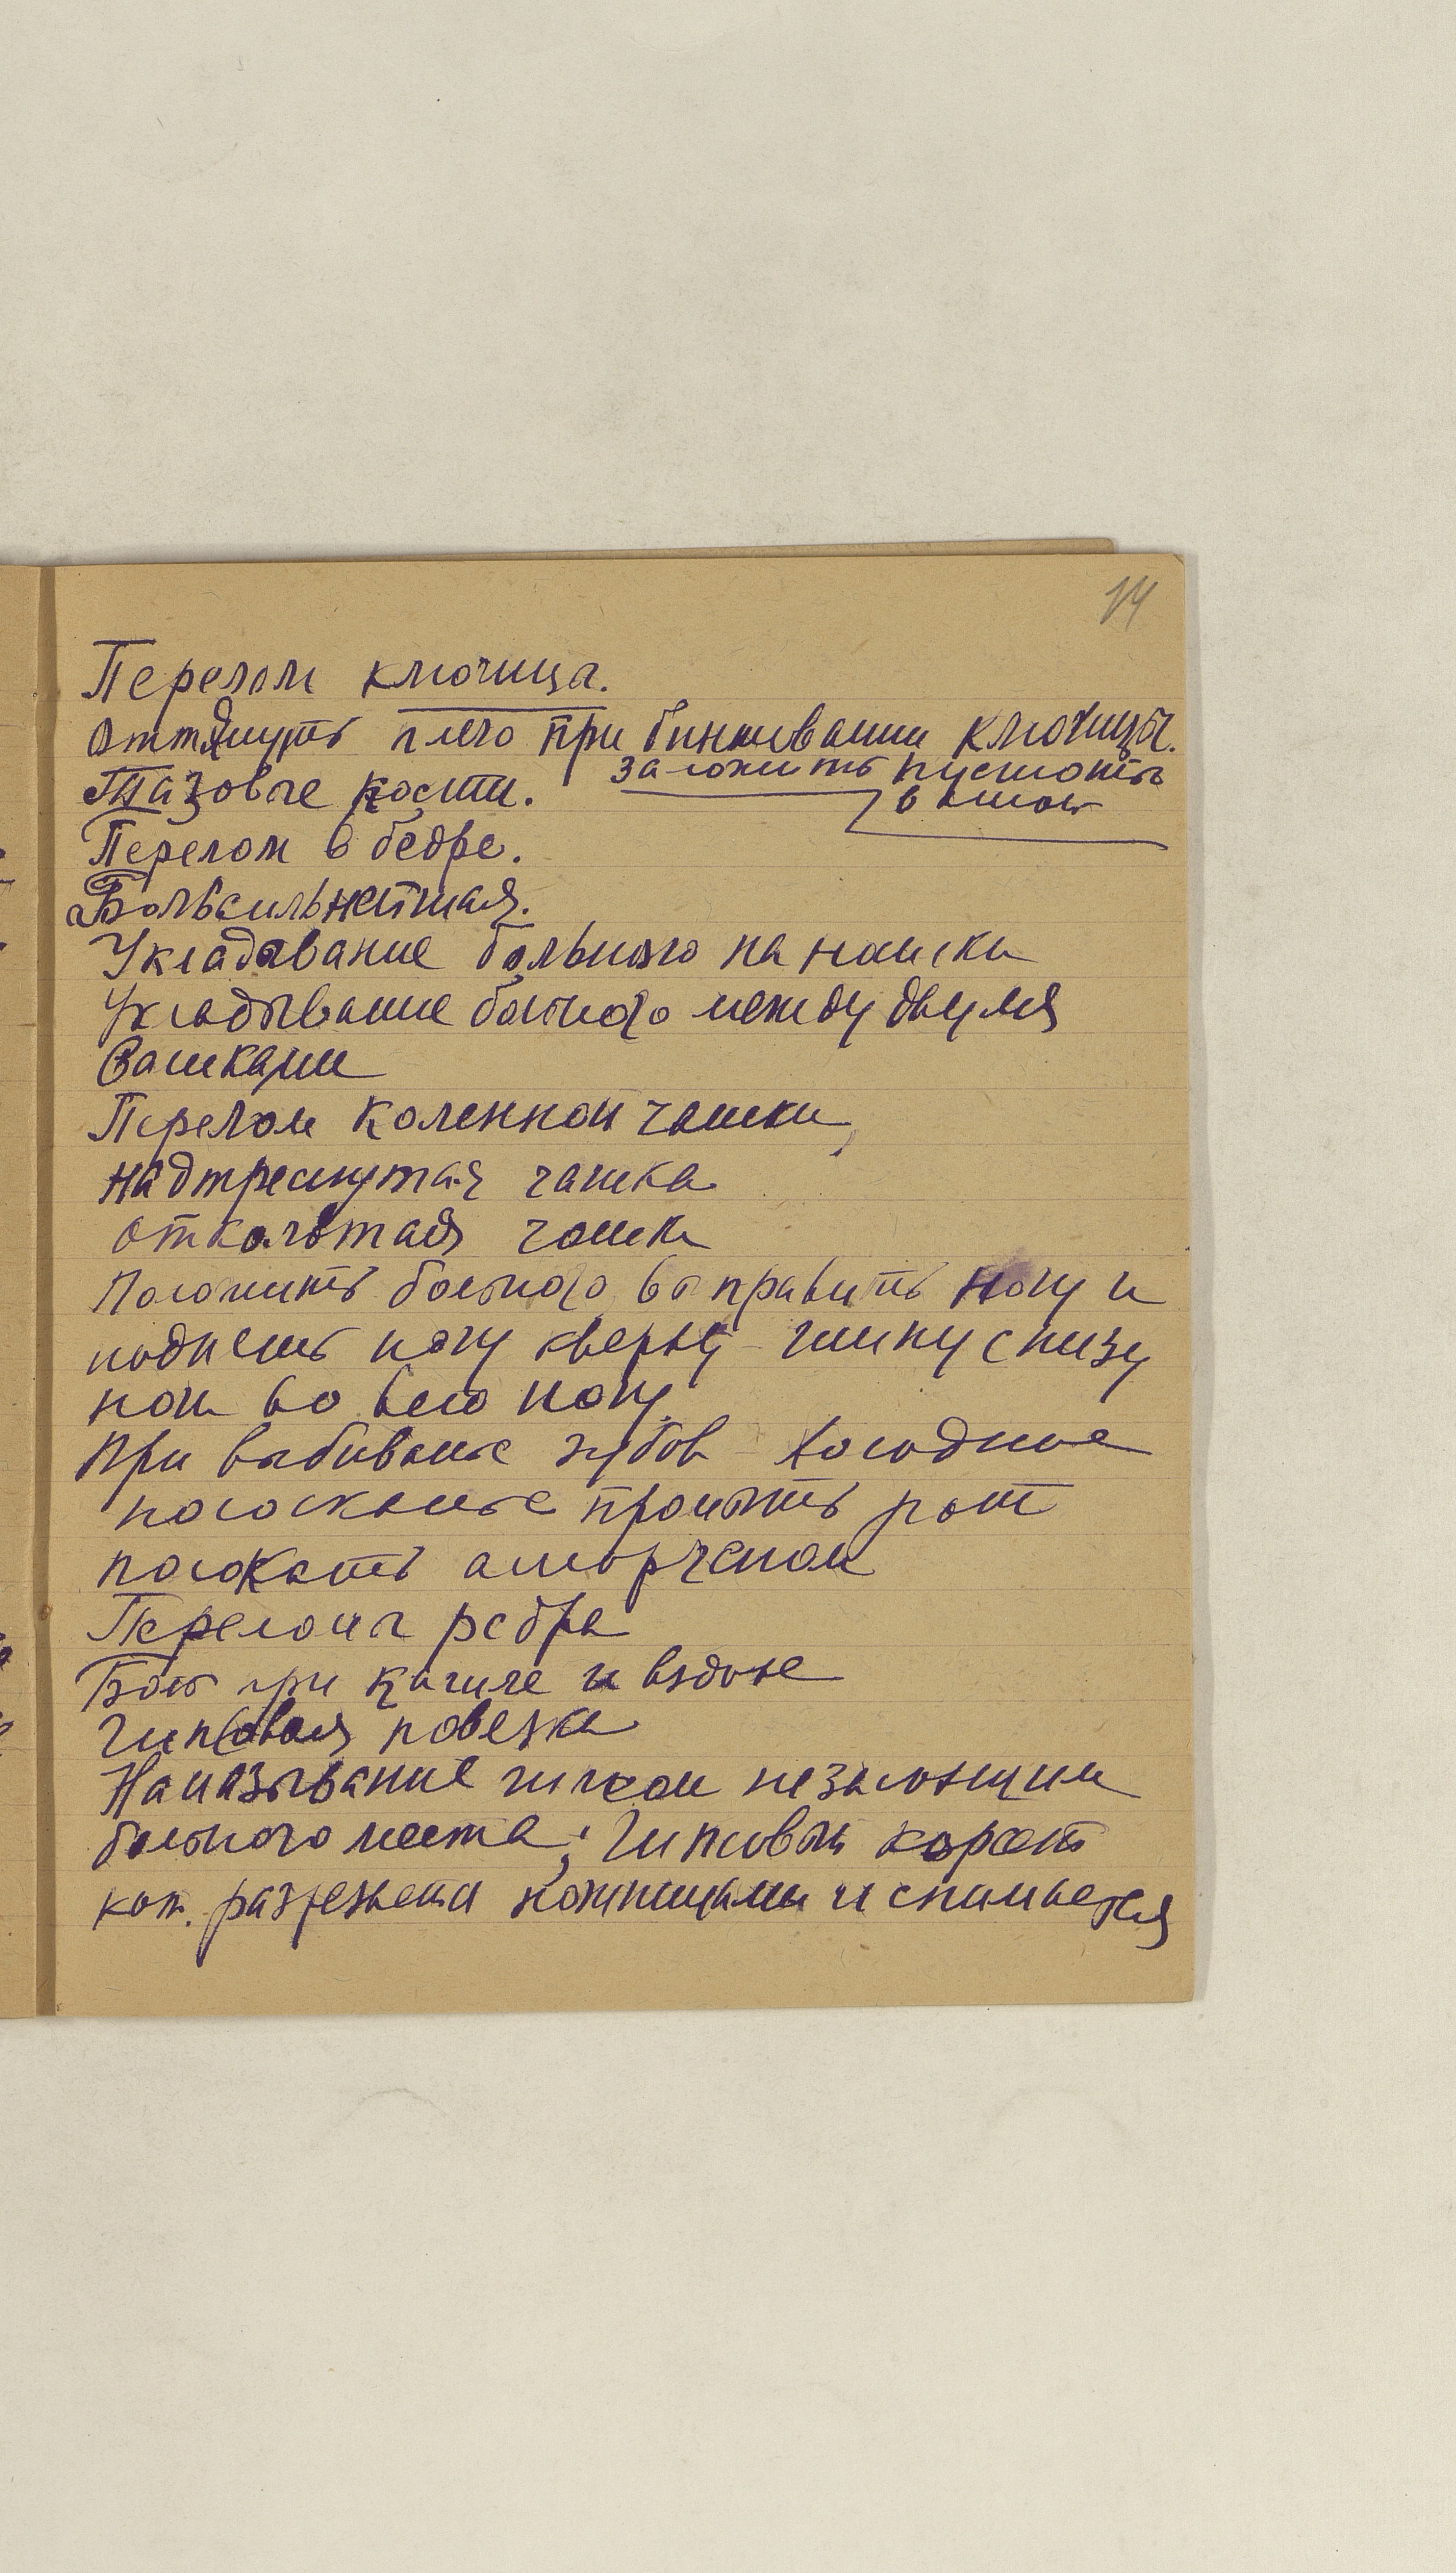 14
Перелом ключицы.
Оттянуть плечо при бинтовании ключицы.
Тазовые кости. заложить пустоты
ватой
Перелом в бедре.
Боль сильнейшая.
Укладывание больного на носилки
Укладывание больного между двумя
Перелом коленной чашки,
надтреснутая чашка
отколотая чашка
Положить больного выправить ногу и
поднять ногу кверху - шину снизу
ноги во всю ногу.
При выбиванье зубов - холодное
полосканье промыть рот
Переломы ребра
Боль при кашле и вздохе
Гипсовая повезка
Намазывание гипсом
больного места; Гипсовый корсет
кот. разрезается ножницами и снимается